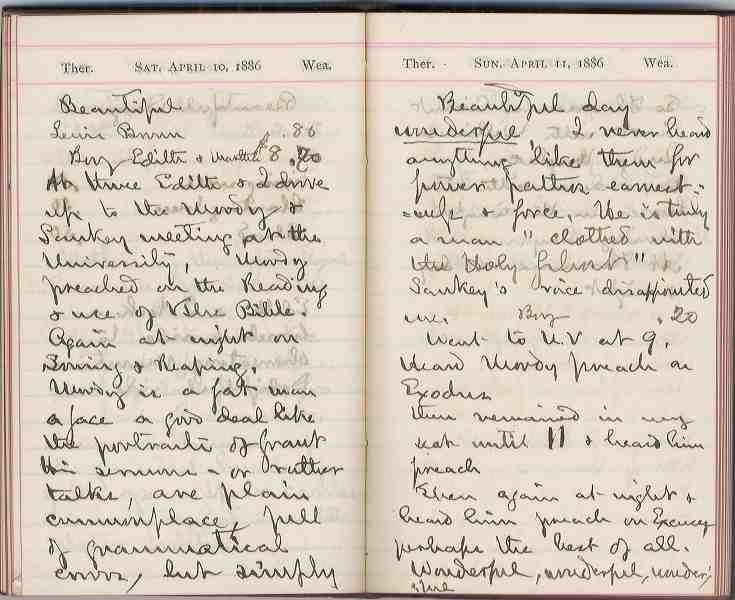 Ther. SAT. APRIL 10, 1886 Wea.
Beautiful
Lewis Brown .80
Boy Edith & Martha 8 .20
At three Edith & I drove
up to the Moody &
Sankey meeting at the
University, Moody
preached on the Reading
& use of the Bible.
Again at night on
Sowing & Reaping.
Moody is a fat man
a face a good deal like
the portraits of Grant
His sermons - or rather
talks, are plain
commonplace, full
of grammatical
errors, but simply
Ther. SUN. APRIL 11, 1886 Wea.
Beautiful day
wonderful, I never heard
anything like them for
power pathos earnest-
=ness & force. He is truly
a man "clothed with
the Holy Ghost"
Sankey's voice disappointed
me. Boy .20
Went to U.V at 9.
Heard Moody preach on
Exodus
then remained in my
seat until 11 & heard him
preach
Even again at night &
heard him preach on Excuses
perhaps the best of all.
Wonderful, wonderful, wonder,
=ful